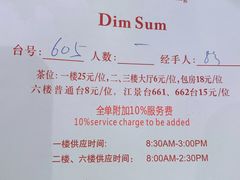 Dim Sum
台号: 605 人数: 一 经手人:
茶位: 一楼25元/位, 二、三楼大厅6元/位, 包房18元/位
六楼普通台8元/位, 江景台661、662台15元/位
全单附加10%服务费
10%service charge to be added
一楼供应时间: 8:30AM-3:00PM
二楼、六楼供应时间: 8:00AM-2:30PM